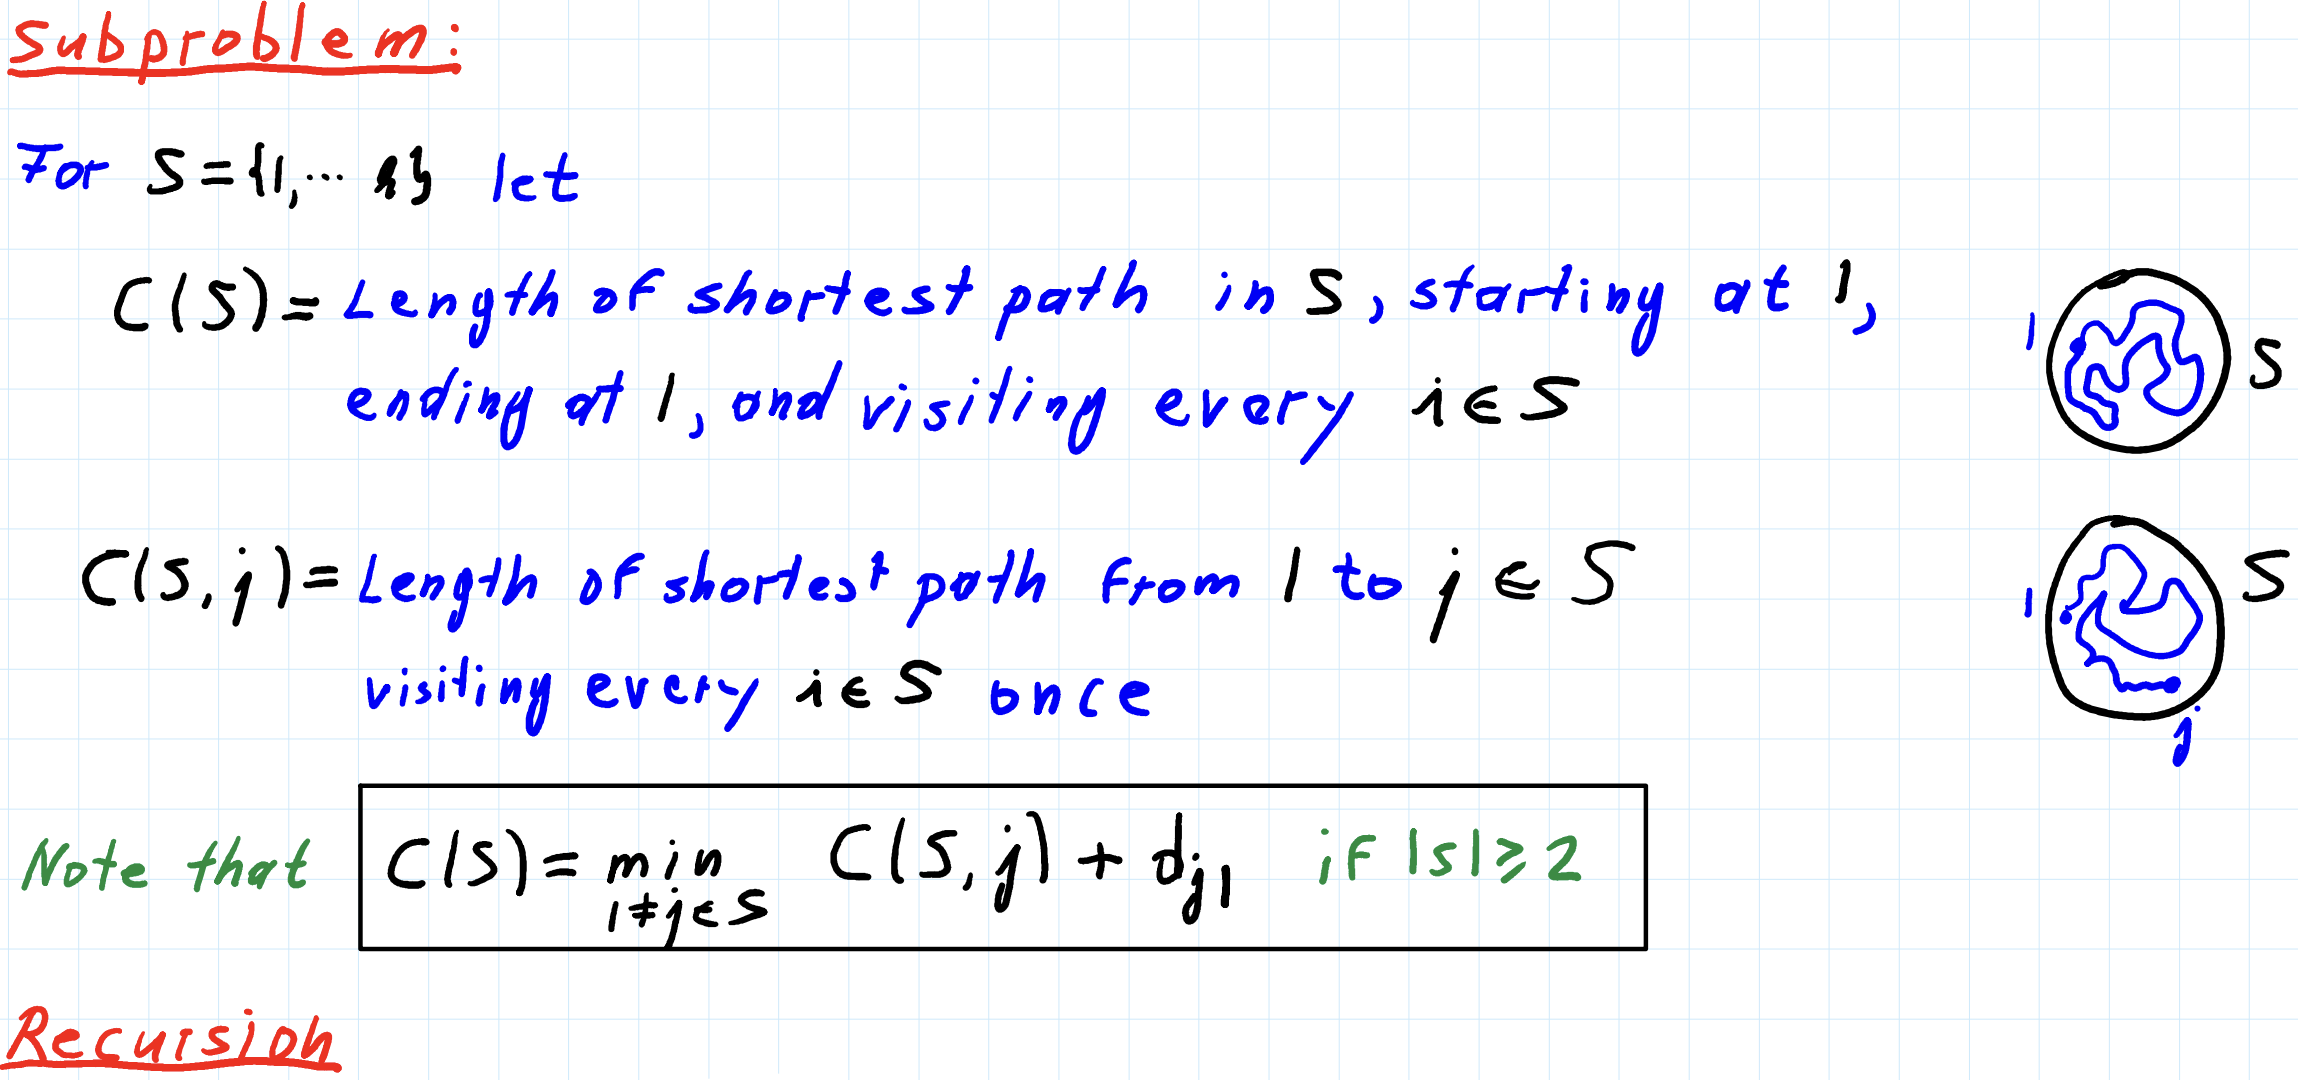 Subproblem:
For S={1,... n} let
C(S)= Length of shortest path in S, starting at 1,
ending at 1, and visiting every i ∈ S
1 S
C(S,j)= Length of shortest path from 1 to j ∈ S
visiting every i ∈ S once
1 S
j
Note that C(S) = min C(S,j) + d_{j1} if |S| ≥ 2
1≠j∈S
Recursion